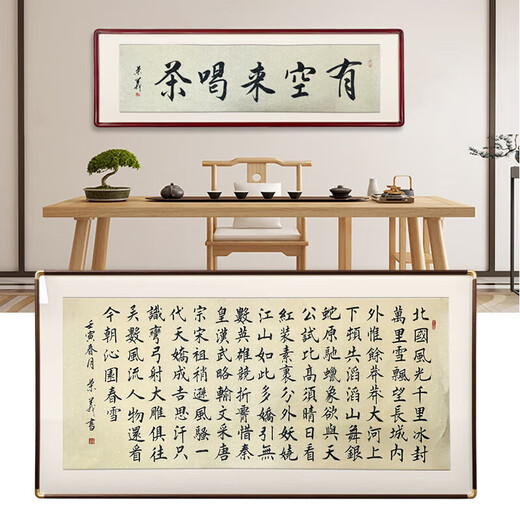 有空来喝茶
荣義
北國風光千里冰封
萬里雪飄望長城内
外惟餘莽莽大河上
下頓失滔滔山舞銀
蛇原馳蠟象欲與天
公試比高須晴日看
紅装素裹分外妖嬈
江山如此多嬌引無
數英雄競折腰惜秦
皇漢武略輸文采唐
宗宋祖稍遜風騷一
代天驕成吉思汗只
識彎弓射大雕俱往
矣數風流人物還看
今朝沁園春雪
壬寅春月 荣義書